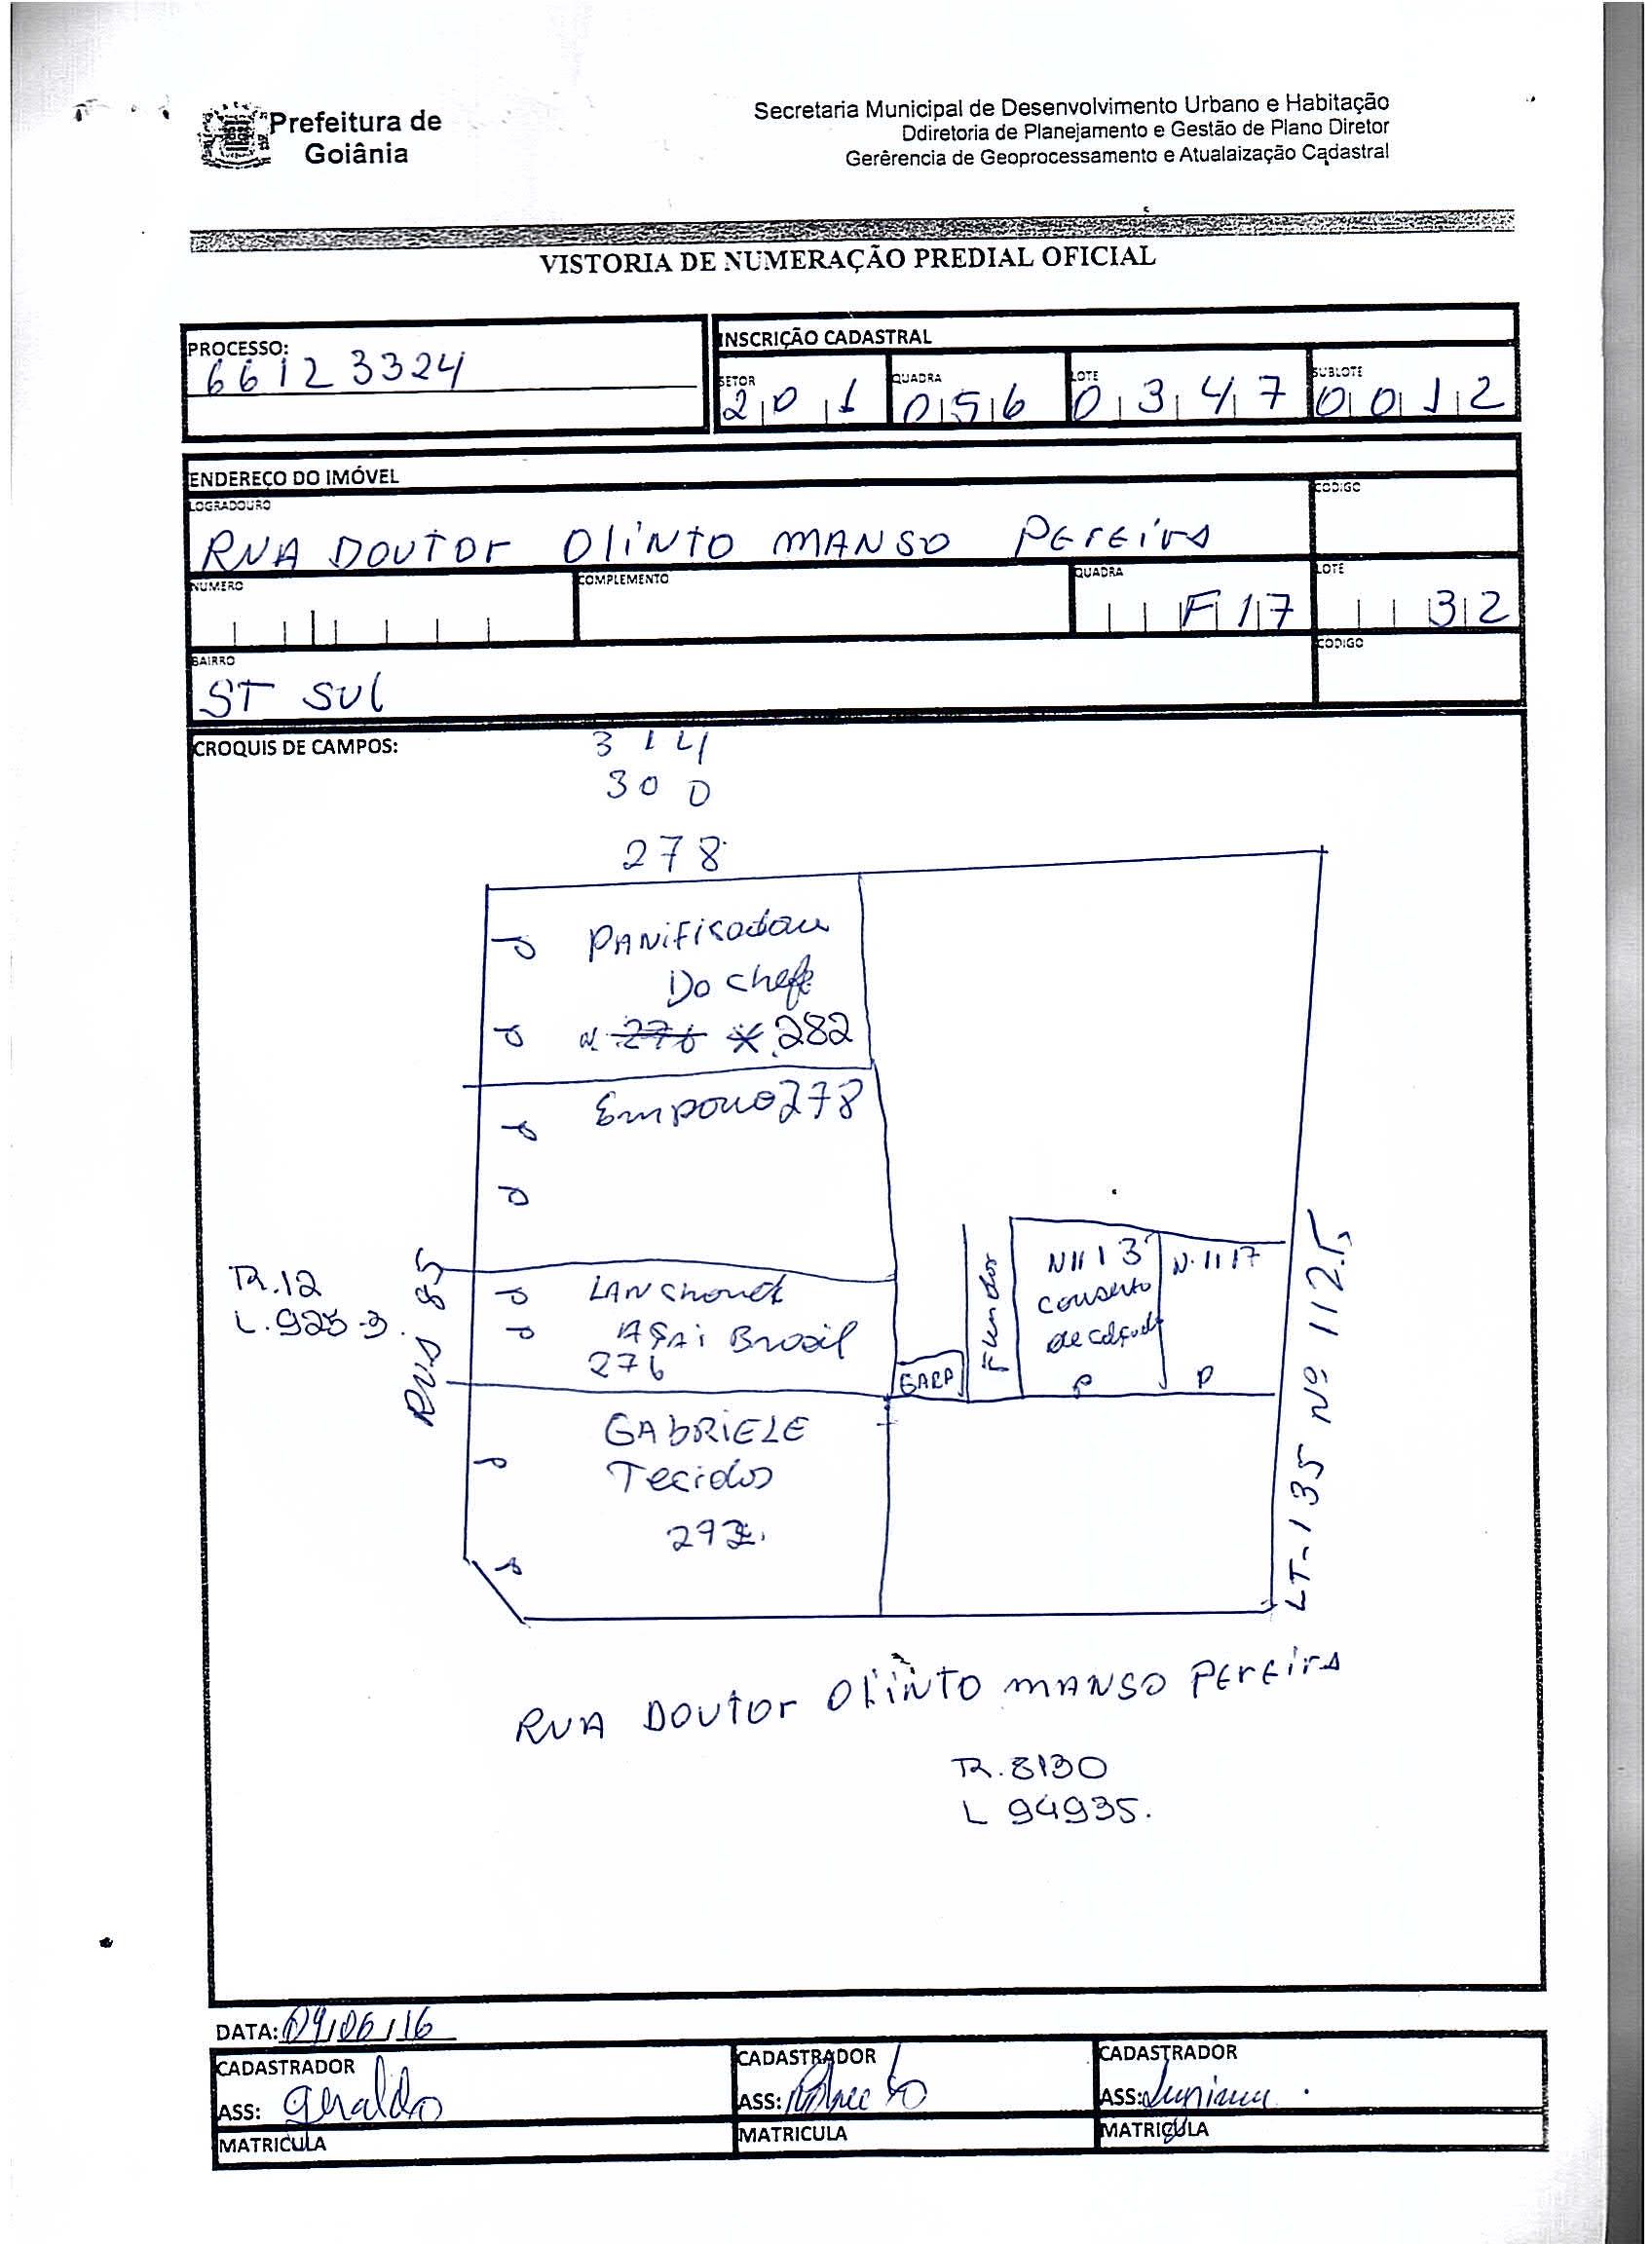 Prefeitura de
Goiânia
Secretaria Municipal de Desenvolvimento Urbano e Habitação
Ddiretoria de Planejamento e Gestão de Plano Diretor
Gerêrencia de Geoprocessamento e Atualaização Cadastral
VISTORIA DE NUMERAÇÃO PREDIAL OFICIAL
PROCESSO:
66123324
INSCRIÇÃO CADASTRAL
SETOR QUADRA LOTE SUBLOTE
201 056 0347 0012
ENDEREÇO DO IMÓVEL
LOGRADOURO CODIGO
RUA DOUTOR OlINTO MANSO PErEirA
NUMERO COMPLEMENTO QUADRA LOTE
F17 32
BAIRRO CODIGO
ST SUl
CROQUIS DE CAMPOS:
314
300
278
PANIFICADORA
Do Chefe
N. 276 * 282
Emporio 278
TR.12
L.925-3.
RUA 85
LANCHONET
AÇAi Brasil
276
GARP
Fundos
N 1113
Conserto
de calçado
P
N. 1117
P
LT-135 Nº 1125
GAbRIELE
Tecidos
RUA DOUTOR OlINTO MANSO PErEirA
TR.8130
L 94935.
DATA: 09/06/16
CADASTRADOR CADASTRADOR CADASTRADOR
ASS: Geraldo ASS: ASS:
MATRICULA MATRICULA MATRICULA